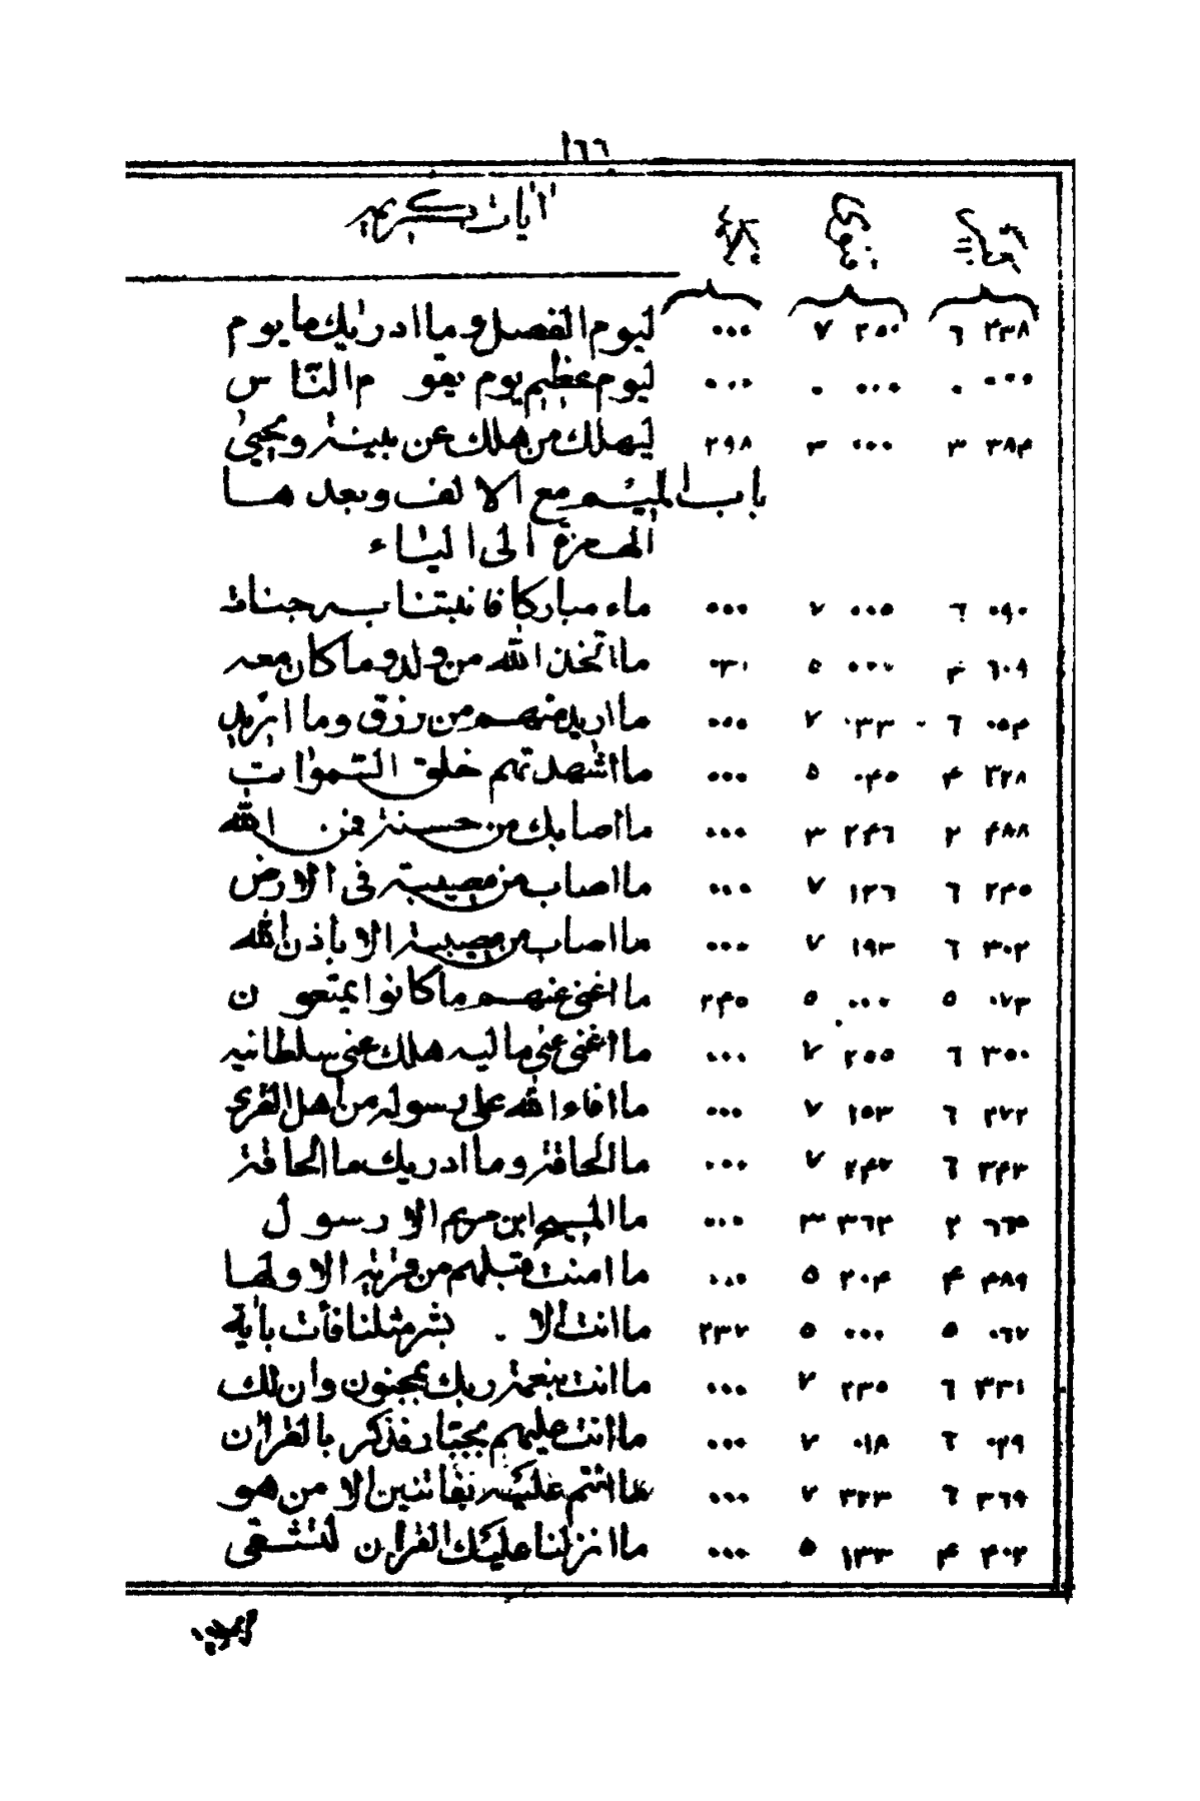 ١٦٦
آيات كريمه
٢٣٨ ٦ ٢٥٠ ٧ ٠٠٠ ليوم الفصل وما ادريك ما يوم
٠٠٠ ٠ ٠٠٠ ٠ ٠٠٠ ليوم عظيم يوم يقوم الناس
٣٨۴ ٣ ٠٠٠ ٣ ٢٩٨ ليهلك من هلك عن بينة ويحيى
باب الميم مع الالف وبعدها
الهمزة الى الياء
٠٩٠ ٦ ٠٠٥ ٧ ٠٠٠ ماء مباركا فانبتنا به جنات
٦٠٩ ۴ ٠٠٠ ٥ ٠٣١ ما اتخذ الله من ولد وما كان معه
٠٥۴ ٦ ٠٣٣ ٧ ٠٠٠ ما اريد منهم من رزق وما اريد
٣٢٨ ۴ ٠۴٥ ٥ ٠٠٠ ما اشهدتهم خلق السموات
۴٨٨ ٢ ٢۴٦ ٣ ٠٠٠ ما اصابك من حسنة فمن الله
٢۴٥ ٦ ١٢٦ ٧ ٠٠٠ ما اصاب من مصيبة فى الارض
٣٠٢ ٦ ١٩٣ ٧ ٠٠٠ ما اصاب من مصيبة الا باذن الله
٠٧٣ ٥ ٠٠٠ ٥ ٢۴٥ ما اغنى عنهم ما كانوا يمتعون
٣٥٠ ٦ ٢٥٥ ٧ ٠٠٠ ما اغنى عنى ماليه هلك عنى سلطانيه
٢٧٢ ٦ ١٥٣ ٧ ٠٠٠ ما افاء الله على رسوله من اهل القرى
٣۴٣ ٦ ٢۴٧ ٧ ٠٠٠ ما الحاقة وما ادريك ما الحاقة
٦٦٥ ٢ ٣٦٣ ٣ ٠٠٠ ما المسيح ابن مريم الا رسول
۴٨٩ ۴ ٢٠۴ ٥ ٠٠٠ ما امنت قبلهم من قرية الا ولها
٠٦٧ ٥ ٠٠٠ ٥ ٢٣٧ ما انت الا بشر مثلنا فأت باية
٣٣١ ٦ ٢٣٥ ٧ ٠٠٠ ما انت بنعمة ربك بمجنون وان لك
٠٢٩ ٦ ٠١٨ ٧ ٠٠٠ ما انت عليهم بجبار فذكر بالقران
٣٦٩ ٦ ٣٢٣ ٧ ٠٠٠ ما انتم عليه بفاتنين الا من هو
۴٠٢ ۴ ١٣٣ ٥ ٠٠٠ ما انزلنا عليك القران لتشقى